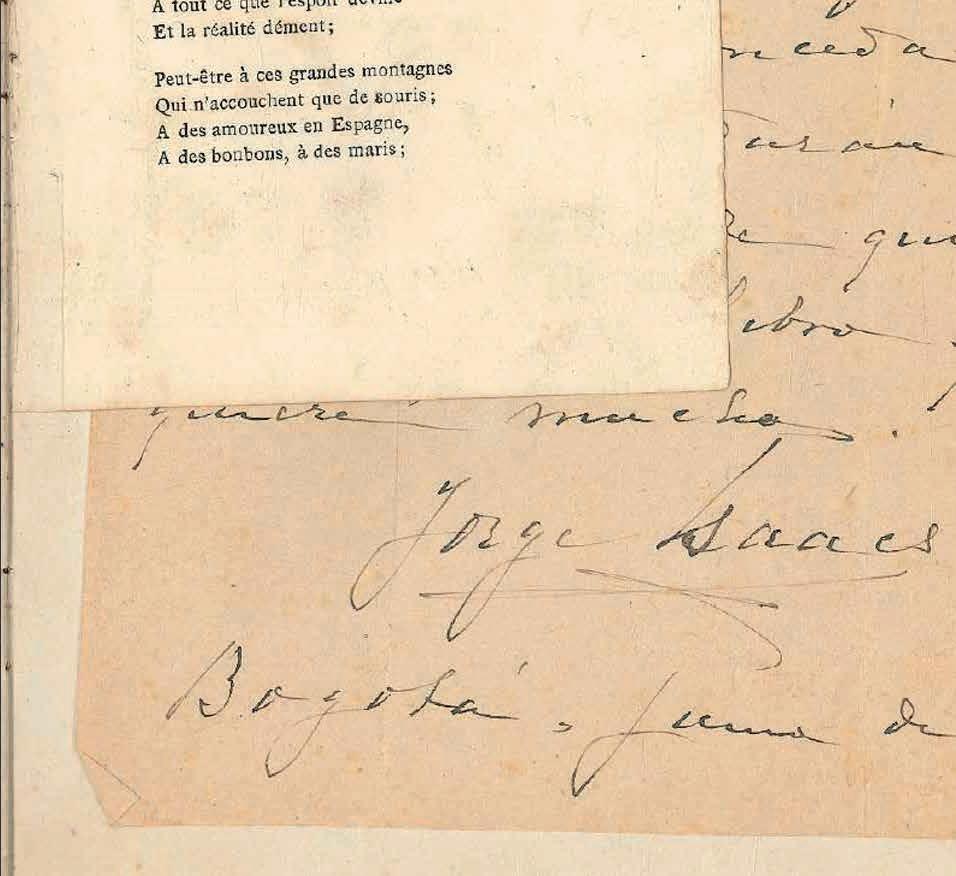 A tout ce que l'espoir devine
Et la réalité dément;
Peut-être à ces grandes montagnes
Qui n'accouchent que de souris;
A des amoureux en Espagne,
A des bonbons, à des maris;
que
libro
querré mucho.
Jorge Isaacs
Bogotá, Junio de